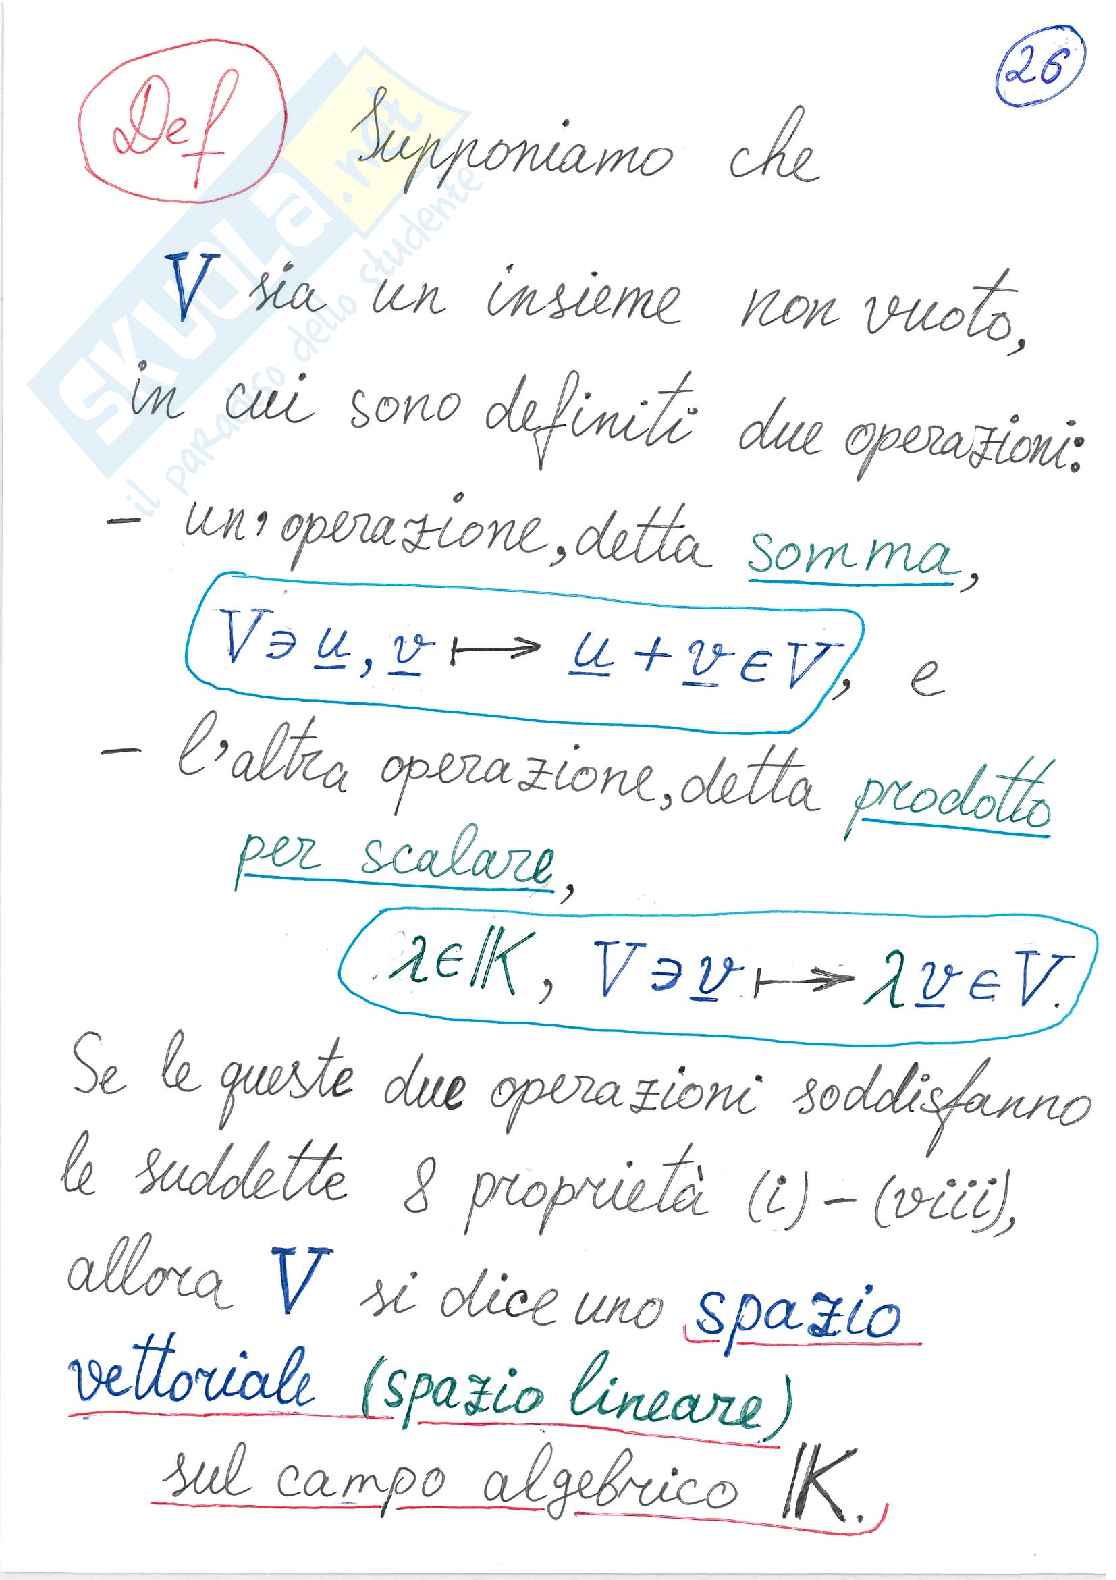 26
Def Supponiamo che
V sia un insieme non vuoto,
in cui sono definiti due operazioni:
- un'operazione, detta somma,
V∋u, v ↦ u + v ∈ V, e
- l'altra operazione, detta prodotto
per scalare,
λ∈𝕂, V∋v ↦ λv ∈ V.
Se le queste due operazioni soddisfanno
le suddette 8 proprietà (i) - (viii),
allora V si dice uno spazio
vettoriale (spazio lineare)
sul campo algebrico 𝕂.
SKUOLA.net
il paradiso dello studente